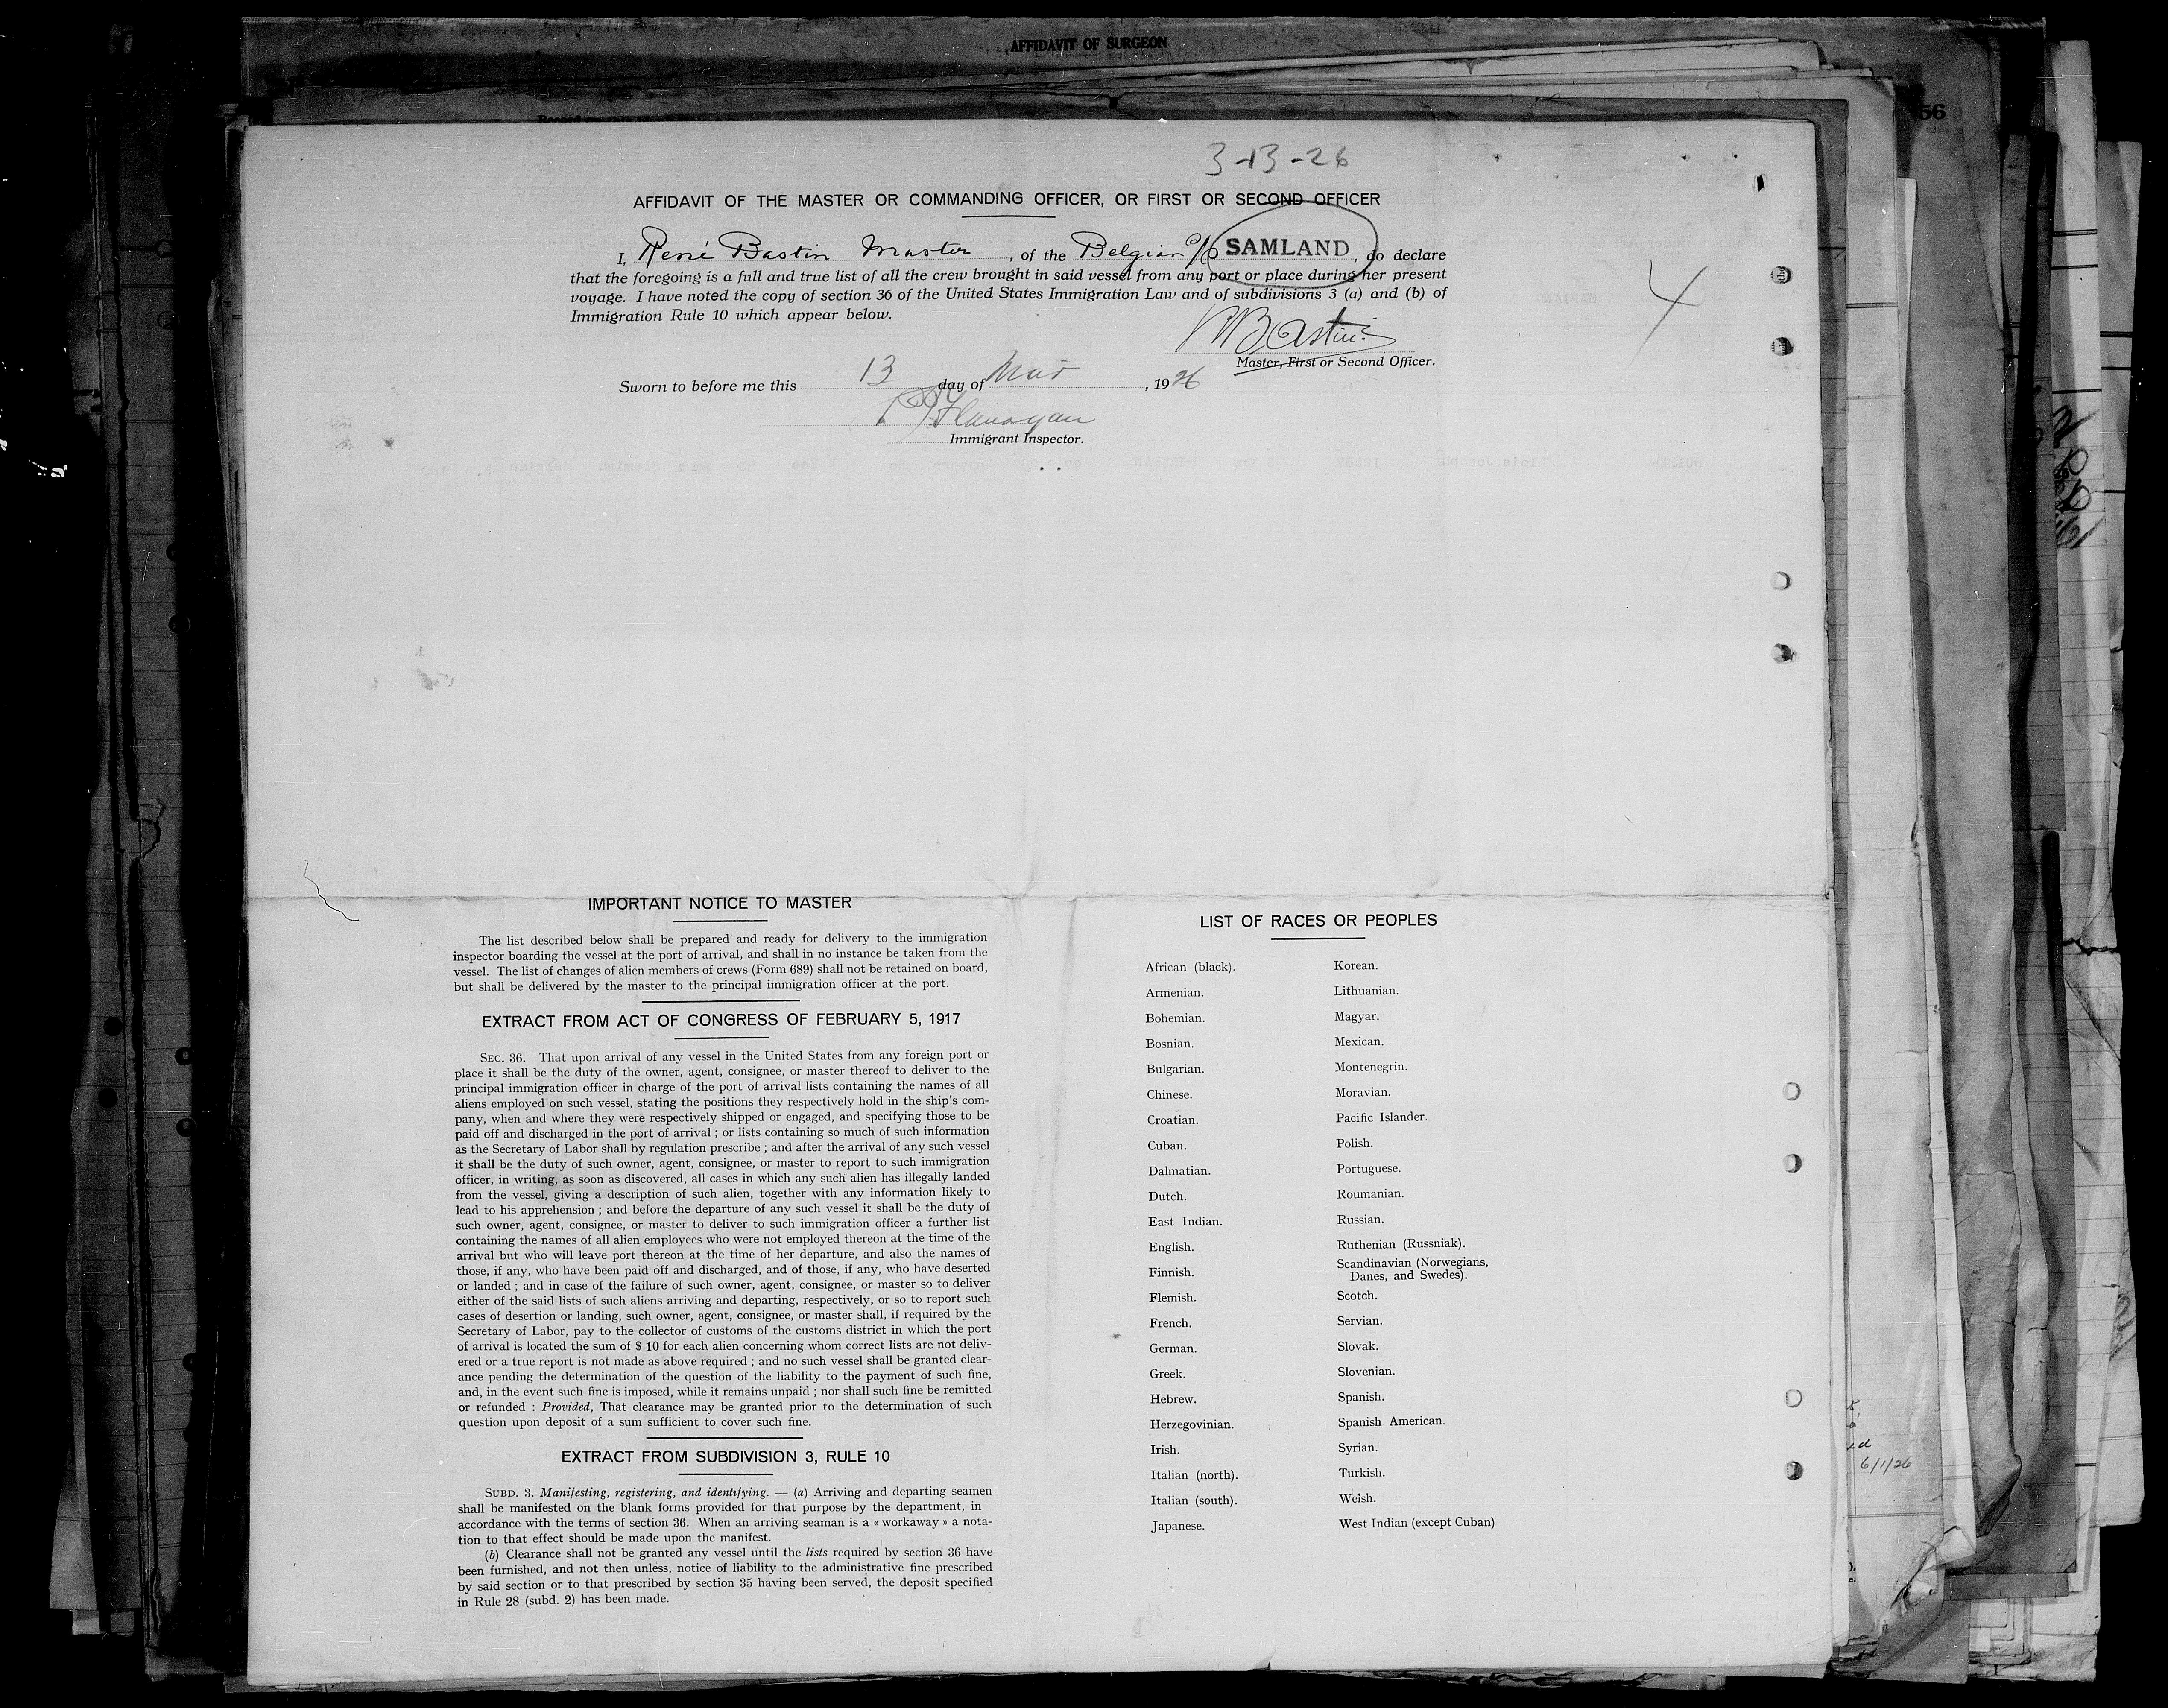 AFFIDAVIT OF SURGEON
56
3-13-26
AFFIDAVIT OF THE MASTER OR COMMANDING OFFICER, OR FIRST OR SECOND OFFICER
I, René Bastin Master, of the Belgian S/S SAMLAND, do declare
that the foregoing is a full and true list of all the crew brought in said vessel from any port or place during her present
voyage. I have noted the copy of section 36 of the United States Immigration Law and of subdivisions 3 (a) and (b) of
Immigration Rule 10 which appear below.
4
RBastin
Master, First or Second Officer.
Sworn to before me this 13 day of Mar, 1926
Flanagan
Immigrant Inspector.
IMPORTANT NOTICE TO MASTER
The list described below shall be prepared and ready for delivery to the immigration
inspector boarding the vessel at the port of arrival, and shall in no instance be taken from the
vessel. The list of changes of alien members of crews (Form 689) shall not be retained on board,
but shall be delivered by the master to the principal immigration officer at the port.
EXTRACT FROM ACT OF CONGRESS OF FEBRUARY 5, 1917
SEC. 36. That upon arrival of any vessel in the United States from any foreign port or
place it shall be the duty of the owner, agent, consignee, or master thereof to deliver to the
principal immigration officer in charge of the port of arrival lists containing the names of all
aliens employed on such vessel, stating the positions they respectively hold in the ship's com-
pany, when and where they were respectively shipped or engaged, and specifying those to be
paid off and discharged in the port of arrival ; or lists containing so much of such information
as the Secretary of Labor shall by regulation prescribe ; and after the arrival of any such vessel
it shall be the duty of such owner, agent, consignee, or master to report to such immigration
officer, in writing, as soon as discovered, all cases in which any such alien has illegally landed
from the vessel, giving a description of such alien, together with any information likely to
lead to his apprehension ; and before the departure of any such vessel it shall be the duty of
such owner, agent, consignee, or master to deliver to such immigration officer a further list
containing the names of all alien employees who were not employed thereon at the time of the
arrival but who will leave port thereon at the time of her departure, and also the names of
those, if any, who have been paid off and discharged, and of those, if any, who have deserted
or landed ; and in case of the failure of such owner, agent, consignee, or master so to deliver
either of the said lists of such aliens arriving and departing, respectively, or so to report such
cases of desertion or landing, such owner, agent, consignee, or master shall, if required by the
Secretary of Labor, pay to the collector of customs of the customs district in which the port
of arrival is located the sum of $ 10 for each alien concerning whom correct lists are not deliv-
ered or a true report is not made as above required ; and no such vessel shall be granted clear-
ance pending the determination of the question of the liability to the payment of such fine,
and, in the event such fine is imposed, while it remains unpaid ; nor shall such fine be remitted
or refunded : Provided, That clearance may be granted prior to the determination of such
question upon deposit of a sum sufficient to cover such fine.
EXTRACT FROM SUBDIVISION 3, RULE 10
SUBD. 3. Manifesting, registering, and identifying. — (a) Arriving and departing seamen
shall be manifested on the blank forms provided for that purpose by the department, in
accordance with the terms of section 36. When an arriving seaman is a « workaway » a nota-
tion to that effect should be made upon the manifest.
(b) Clearance shall not be granted any vessel until the lists required by section 36 have
been furnished, and not then unless, notice of liability to the administrative fine prescribed
by said section or to that prescribed by section 35 having been served, the deposit specified
in Rule 28 (subd. 2) has been made.
LIST OF RACES OR PEOPLES
African (black).
Armenian.
Bohemian.
Bosnian.
Bulgarian.
Chinese.
Croatian.
Cuban.
Dalmatian.
Dutch.
East Indian.
English.
Finnish.
Flemish.
French.
German.
Greek.
Hebrew.
Herzegovinian.
Irish.
Italian (north).
Italian (south).
Japanese.
Korean.
Lithuanian.
Magyar.
Mexican.
Montenegrin.
Moravian.
Pacific Islander.
Polish.
Portuguese.
Roumanian.
Russian.
Ruthenian (Russniak).
Scandinavian (Norwegians,
Danes, and Swedes).
Scotch.
Servian.
Slovak.
Slovenian.
Spanish.
Spanish American.
Syrian.
Turkish.
Welsh.
West Indian (except Cuban)
6/1/26